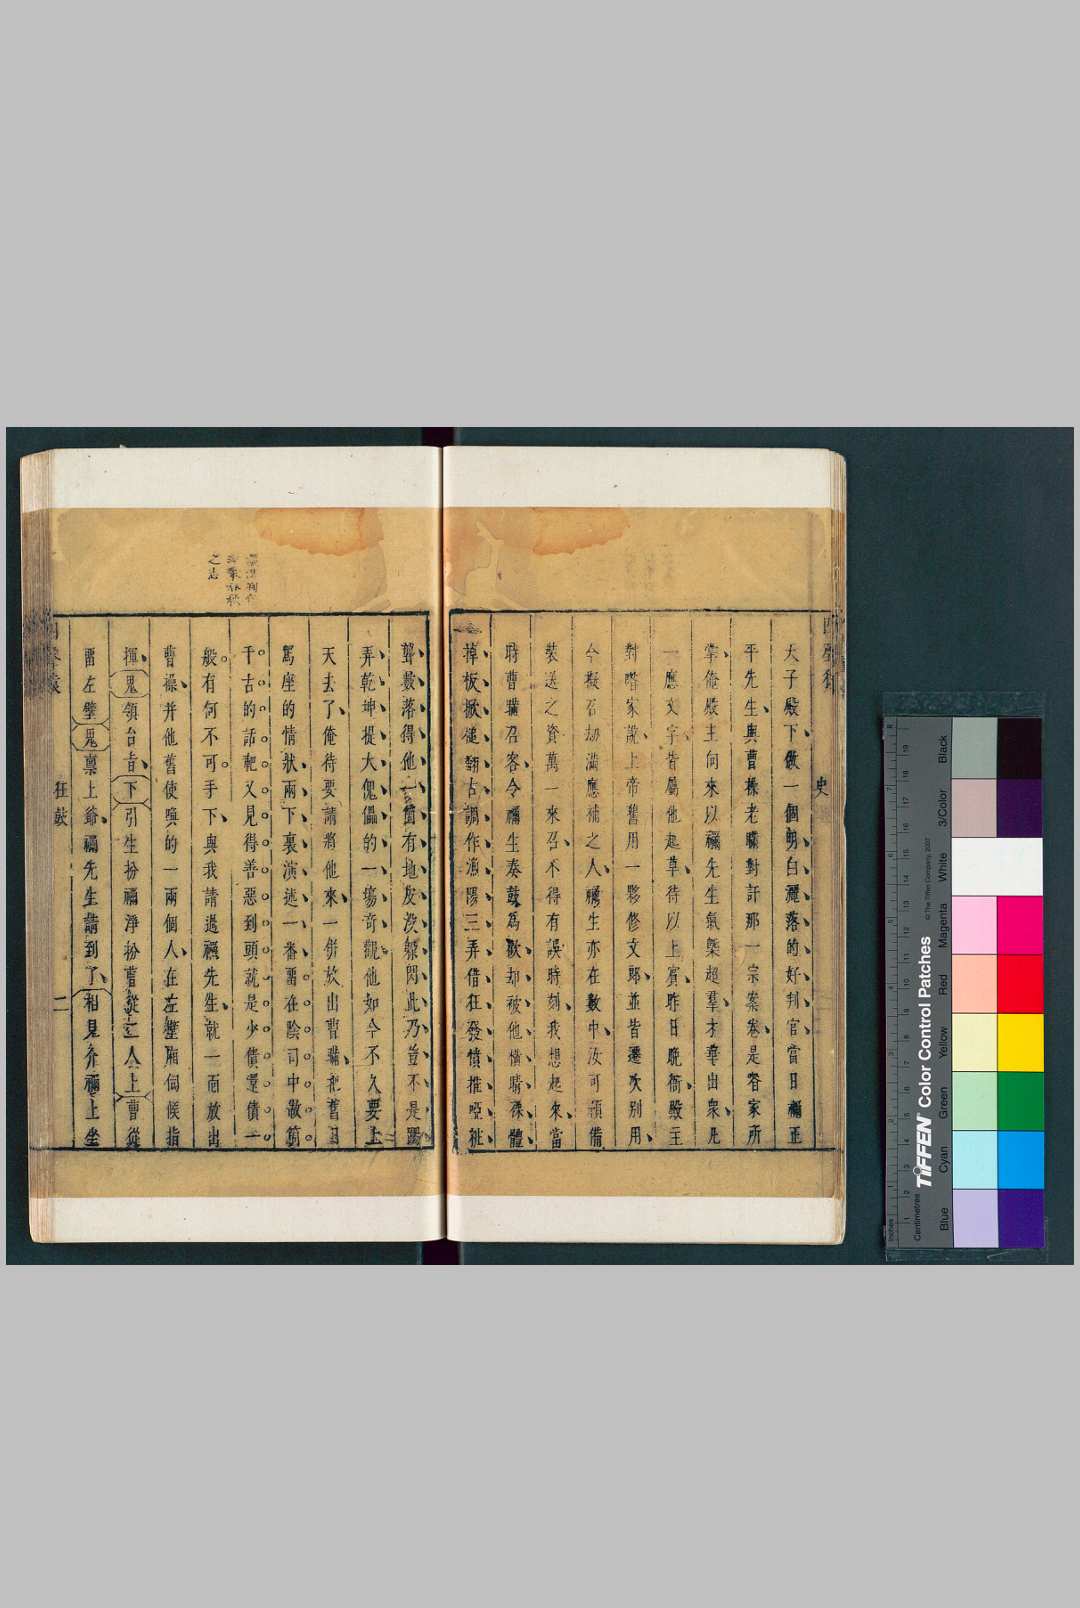 大子殿下做一個明白灑落的好判官當日禰正
平先生與曹操老瞞對訐那一宗案卷是咨家所
掌俺殿主向來以禰先生氣槩超羣才華出衆凡
一應文字皆屬他起草待以上賓昨日晚衙殿主
對咱家說上帝舊用一夥修文郎並皆遷次別用
今擬召劫滿應補之人禰生亦在數中汝可預備
裝送之資萬一來召不得有誤時刻我想起來當
時曹瞞召客令禰生奏鼓為歡却被他橫睛裸體
掉板掀槌翻古調作漁陽三弄借狂發憤推啞粧
聾數落得他一箇有地皮沒躲閃此乃豈不是踢
弄乾坤提大傀儡的一場奇觀他如今不久要上
天去了俺待要請將他來一併放出曹瞞把舊日
罵座的情狀兩下裏演述一番畱在陰司中做箇
千古的話靶又見得善惡到頭就是少債還債一
般有何不可手下與我請過禰先生就一面放出
曹操并他舊使喚的一兩個人在左壁廂伺候指
揮鬼領台旨下引生扮禰淨扮曹從二人上曹從
畱左壁鬼稟上爺禰先生請到了相見介禰上坐
狂鼓
二
史